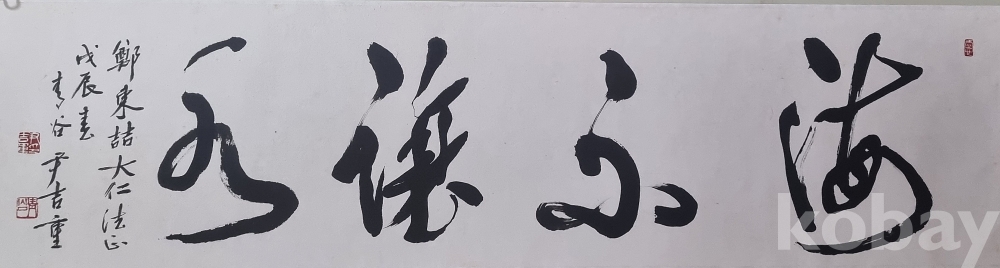 海不讓水
鄭東喆大仁法正
戊辰春
青谷 尹吉重
kobay